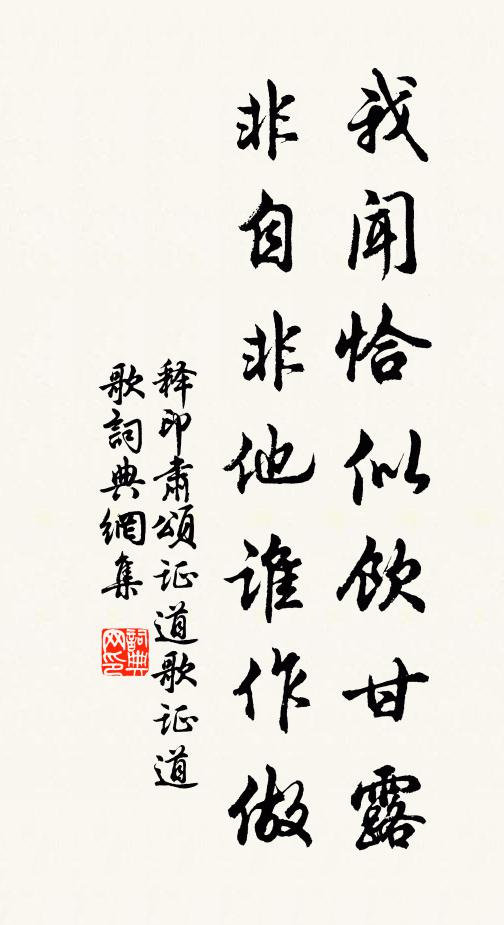 我闻恰似饮甘露
非自非他谁作做
释印肃颂证道歌证道
歌詞典網集
詞典网印